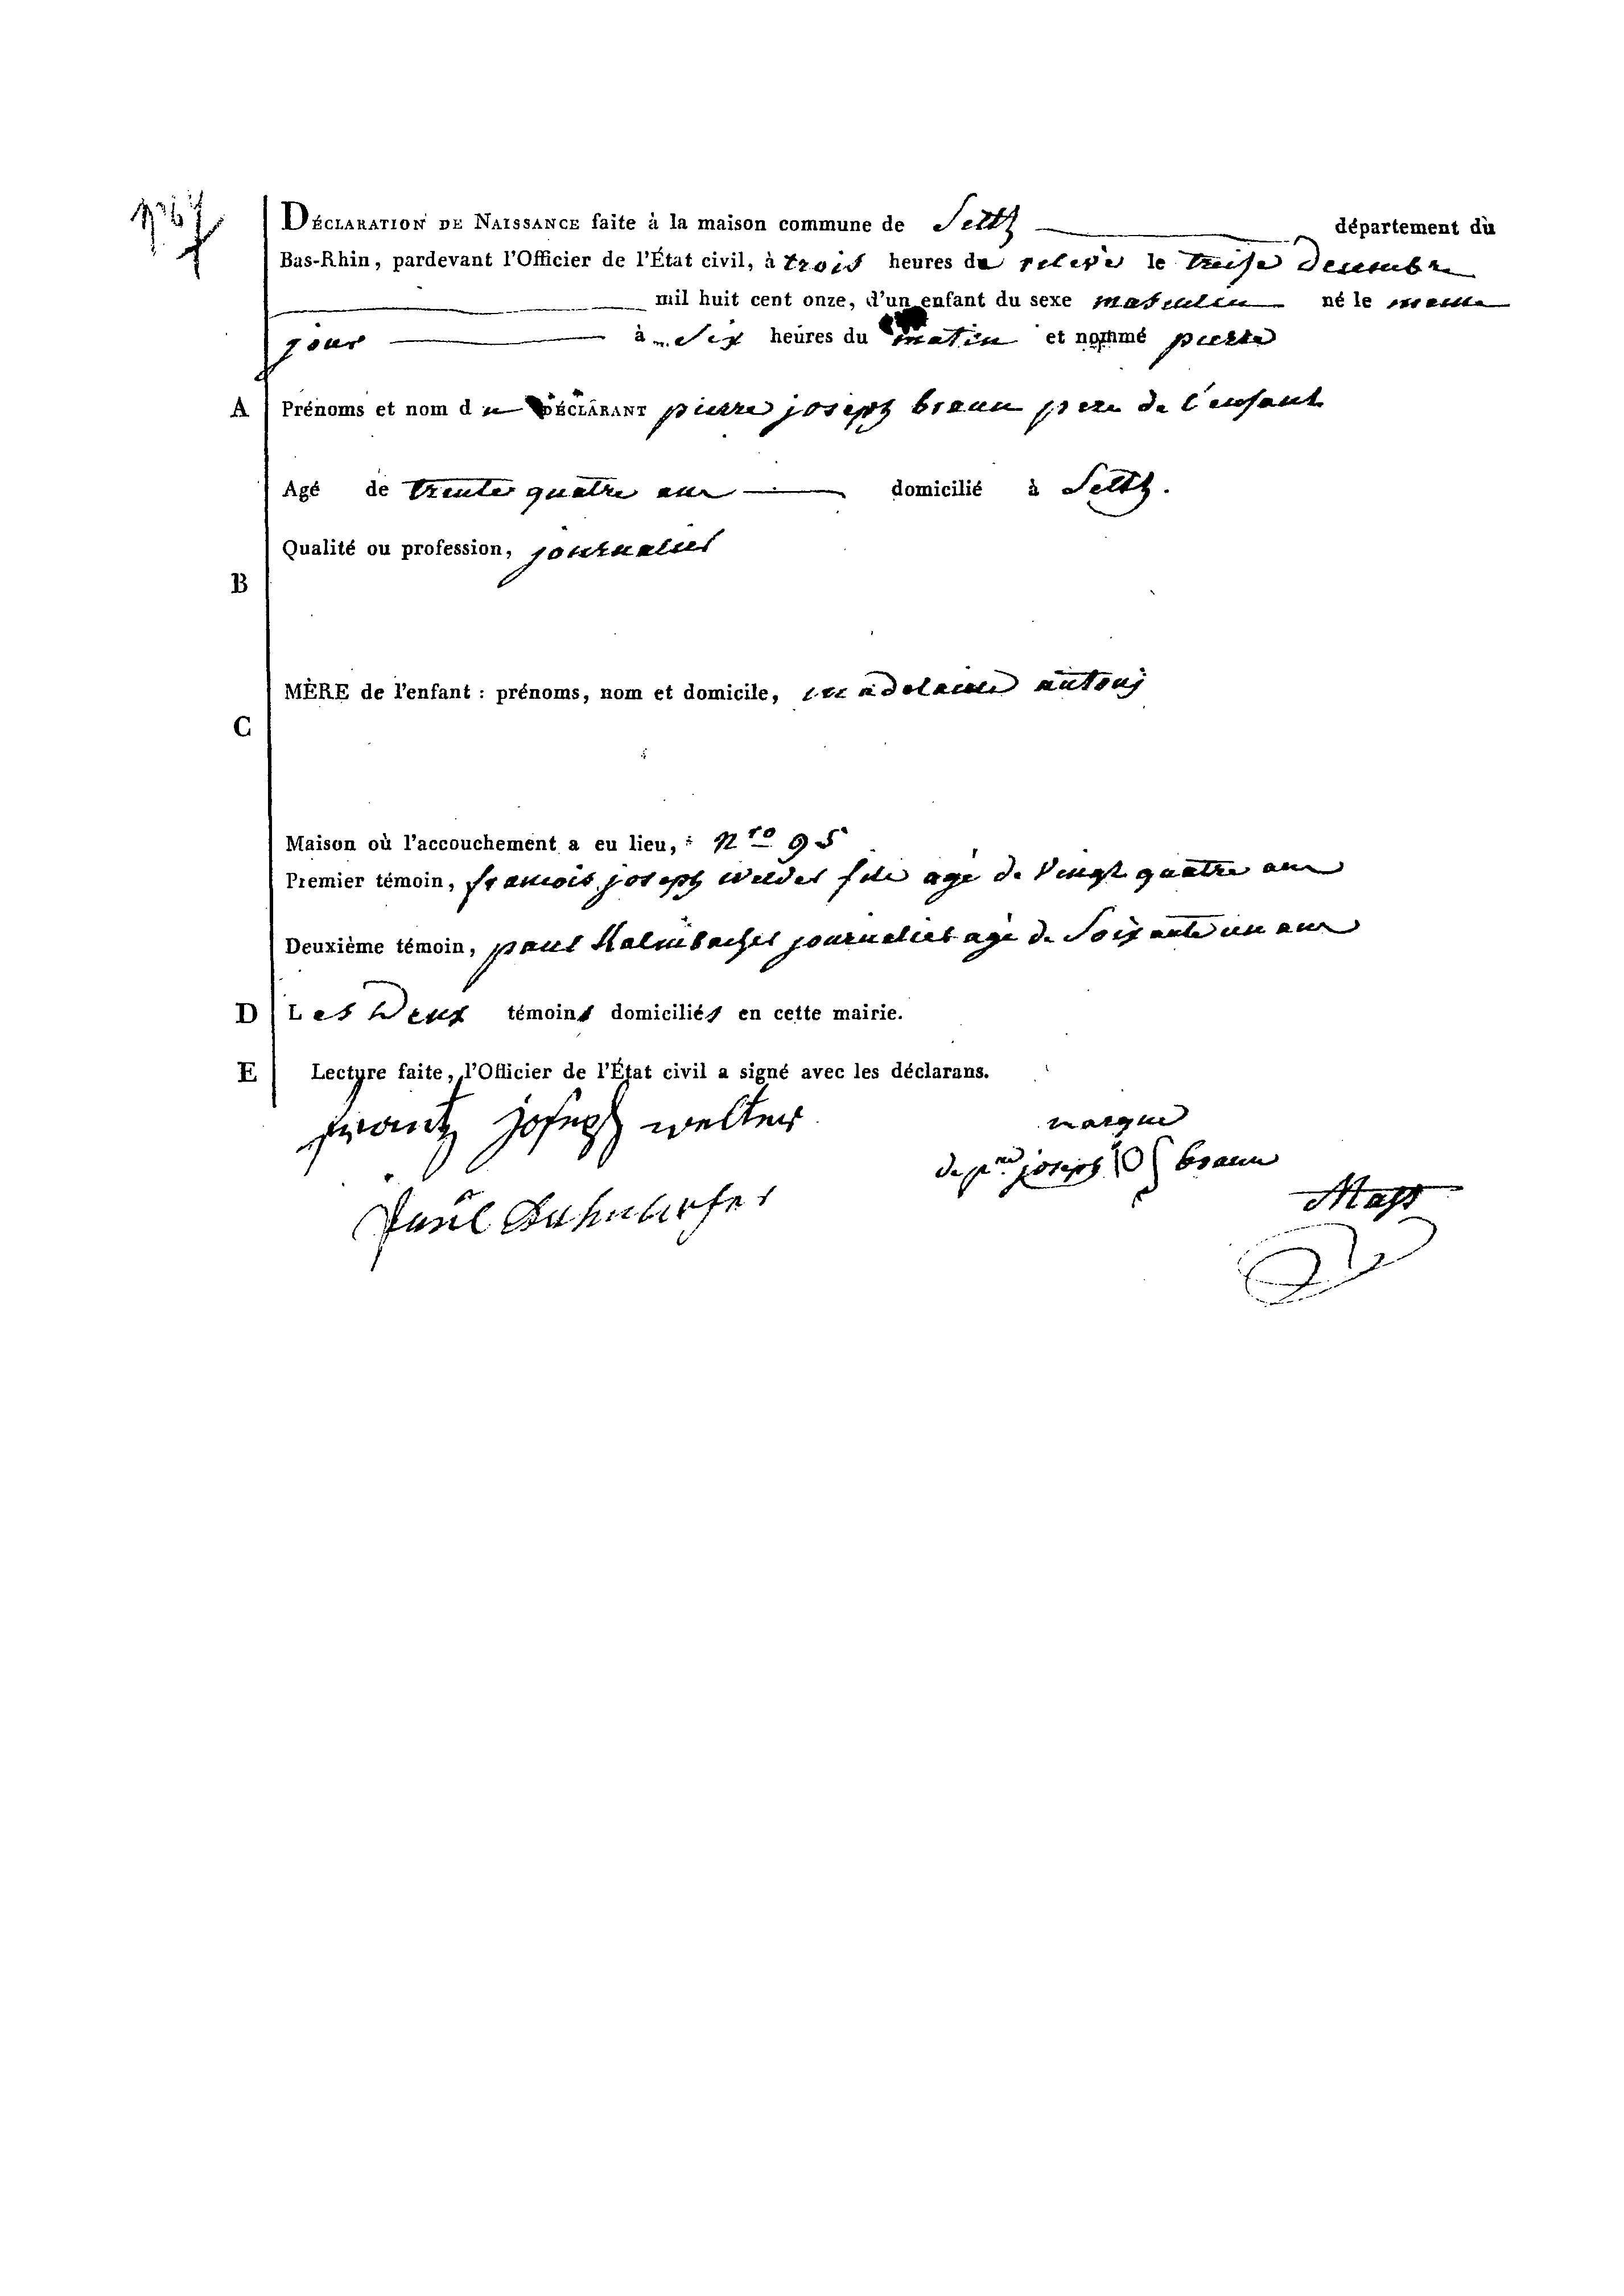 N° 67
DÉCLARATION DE NAISSANCE faite à la maison commune de Seltz département du
Bas-Rhin, pardevant l'Officier de l'État civil, à trois heures de relevé le treise decembre
mil huit cent onze, d'un enfant du sexe masculin né le meme
jour à six heures du matin et nommé pierre
A Prénoms et nom du DÉCLARANT pierre joseph braun pere de l'enfant
Agé de trente quatre ans domicilié à Seltz.
Qualité ou profession, journalier
B
MÈRE de l'enfant : prénoms, nom et domicile, madelaine antonj
C
Maison où l'accouchement a eu lieu, : nro 95
Premier témoin, francois joseph welder fils agé de vingt quatre ans
Deuxième témoin, paul journalier agé de Soixante un ans
D Les Deux témoins domiciliés en cette mairie.
E Lecture faite, l'Officier de l'État civil a signé avec les déclarans.
frantz joseph welter
marque
de prre joseph braun
Paul